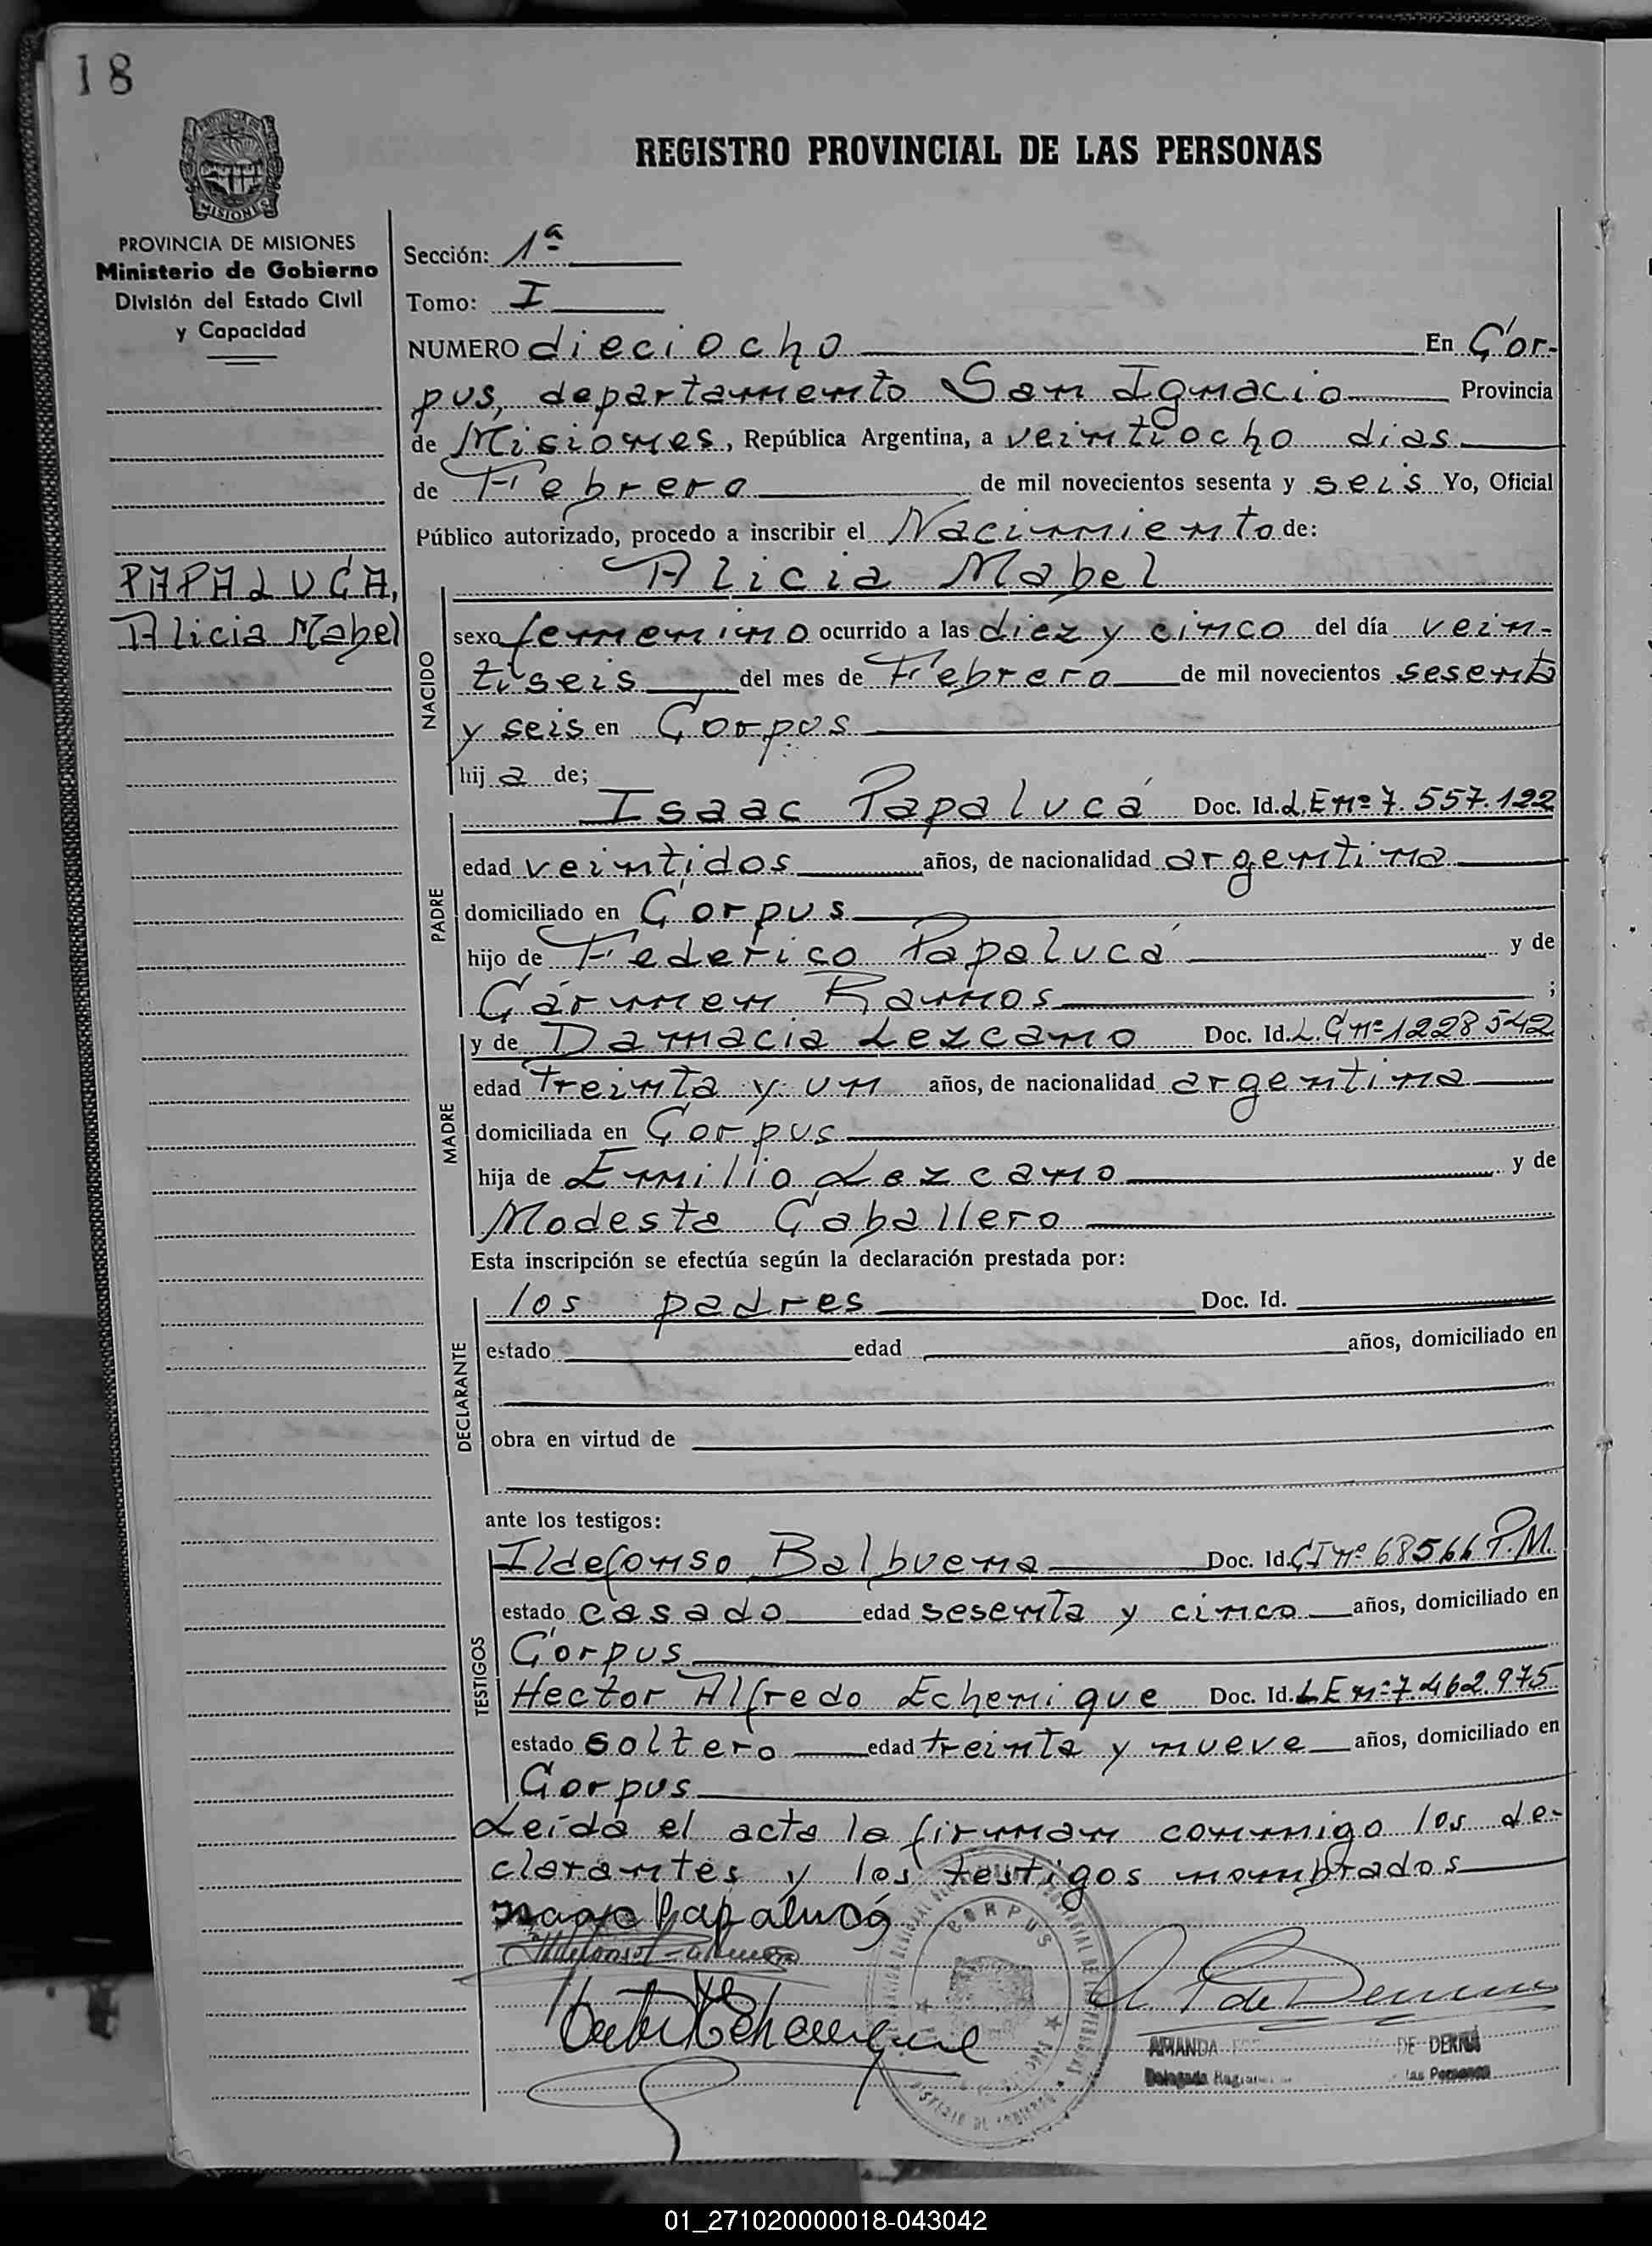 18
REGISTRO PROVINCIAL DE LAS PERSONAS
MISIONES
PROVINCIA DE MISIONES
Ministerio de Gobierno
División del Estado Civil
y Capacidad
PAPALUCA,
Alicia Mabel
Sección: 1ª
Tomo: I
NUMERO dieciocho En Cor-
pus, departamento San Ignacio Provincia
de Misiones, República Argentina, a veintiocho dias
de Febrero de mil novecientos sesenta y seis Yo, Oficial
Público autorizado, procedo a inscribir el Nacimiento de:
Alicia Mabel
NACIDO
sexo femenino ocurrido a las diez y cinco del día vein-
tiseis del mes de Febrero de mil novecientos sesenta
y seis en Corpus
hij a de;
PADRE
Isaac Papalucá Doc. Id. L.E nº 7.557.122
edad veintidos años, de nacionalidad argentina
domiciliado en Corpus
hijo de Federico Papalucá y de
Cármen Ramos ;
MADRE
y de Damacia Lezcano Doc. Id. L.C nº 1228542
edad treinta y un años, de nacionalidad argentina
domiciliada en Corpus
hija de Emilio Lezcano y de
Modesta Caballero
Esta inscripción se efectúa según la declaración prestada por:
DECLARANTE
los padres Doc. Id.
estado edad años, domiciliado en
obra en virtud de
ante los testigos:
TESTIGOS
Ildefonso Balbuena Doc. Id. CI nº 68566 P.M.
estado casado edad sesenta y cinco años, domiciliado en
Corpus
Hector Alfredo Echenique Doc. Id. LE nº 7.462.975
estado soltero edad treinta y nueve años, domiciliado en
Corpus
Leída el acta la firman conmigo los de-
clarantes y los testigos nombrados
Papalucá
CORPUS
AMANDA DE DERNÁ
Delegada las Personas
01_271020000018-043042